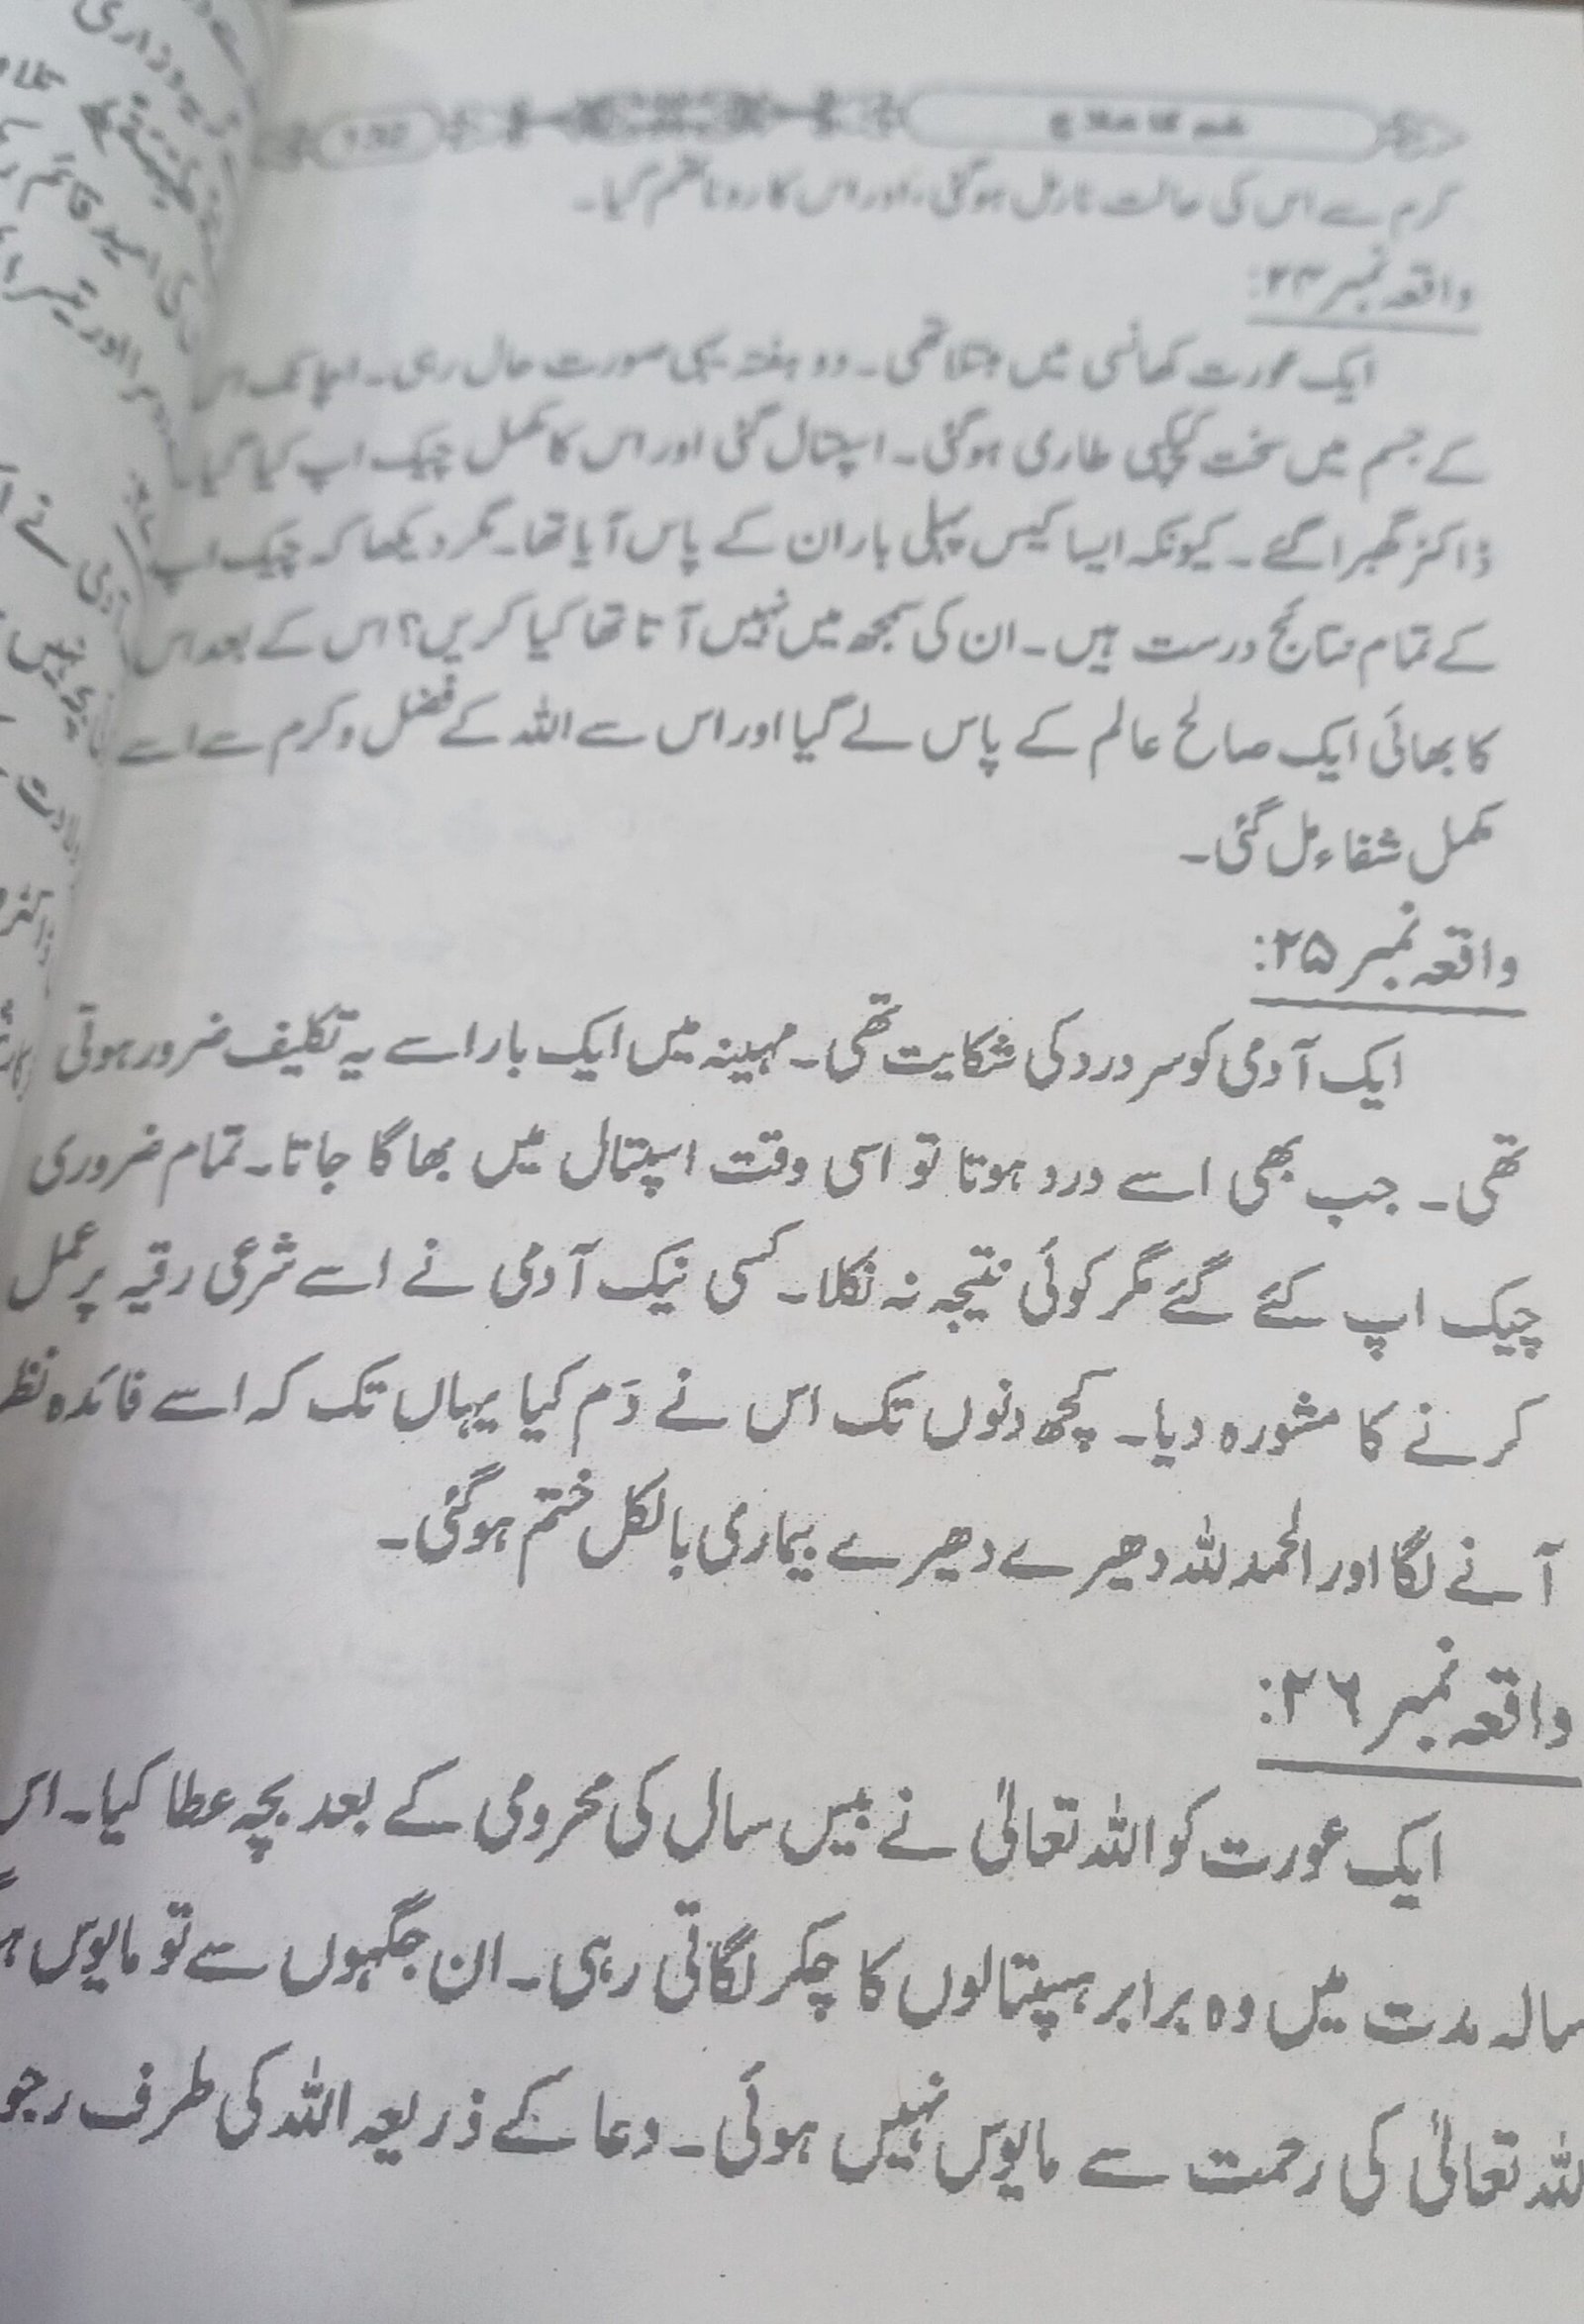 غم کا علاج
کرم سے اس کی حالت نارمل ہوگئی، اور اس کا رونا تھم گیا۔
واقعہ نمبر ۲۴:
ایک عورت کھانسی میں مبتلا تھی۔ دو ہفتہ یہی صورت حال رہی۔ اچانک اس
کے جسم میں سخت کپکپی طاری ہوگئی۔ اسپتال گئی اور اس کا مکمل چیک اپ کیا گیا۔
ڈاکٹر گھبرا گئے۔ کیونکہ ایسا کیس پہلی بار ان کے پاس آیا تھا۔ مگر دیکھا کہ چیک اپ
کے تمام نتائج درست ہیں۔ ان کی سمجھ میں نہیں آتا تھا کیا کریں؟ اس کے بعد اس
کا بھائی ایک صالح عالم کے پاس لے گیا اور اس سے اللہ کے فضل و کرم سے اسے
مکمل شفاء مل گئی۔
واقعہ نمبر ۲۵:
ایک آدمی کو سر درد کی شکایت تھی۔ مہینہ میں ایک بار اسے یہ تکلیف ضرور ہوتی
تھی۔ جب بھی اسے درد ہوتا تو اسی وقت اسپتال میں بھاگا جاتا۔ تمام ضروری
چیک اپ کئے گئے مگر کوئی نتیجہ نہ نکلا۔ کسی نیک آدمی نے اسے شرعی رقیہ پر عمل
کرنے کا مشورہ دیا۔ کچھ دنوں تک اس نے دَم کیا یہاں تک کہ اسے فائدہ نظر
آنے لگا اور الحمد للہ دھیرے دھیرے بیماری بالکل ختم ہوگئی۔
واقعہ نمبر ۲۶:
ایک عورت کو اللہ تعالیٰ نے بیس سال کی محرومی کے بعد بچہ عطا کیا۔ اس
سالہ مدت میں وہ برابر ہسپتالوں کا چکر لگاتی رہی۔ ان جگہوں سے تو مایوس
اللہ تعالیٰ کی رحمت سے مایوس نہیں ہوئی۔ دعا کے ذریعہ اللہ کی طرف رجو